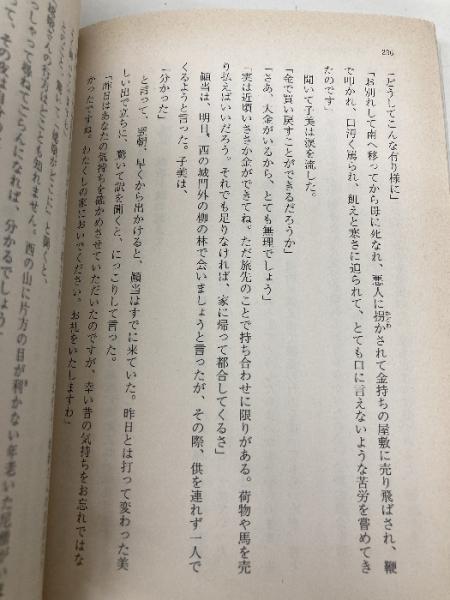 236
「どうしてこんな有り様に」
「お別れして南へ移ってから母に死なれ、悪人に拐かされて金持ちの屋敷に売り飛ばされ、鞭
で叩かれ、口汚く罵られ、飢えと寒さに迫られて、とても口に言えないような苦労を嘗めてき
たのです」
聞いて子美は涙を流した。
「金で買い戻すことができるだろうか」
「さあ、大金がいるから、とても無理でしょう」
「実は近頃いささか金ができてね。ただ旅先のことで持ち合わせに限りがある。荷物や馬を売
り払えばいいだろう。それでも足りなければ、家に帰って都合してくるさ」
顚当は、明日、西の城門外の柳の林で会いましょうと言ったが、その際、供を連れず一人で
くるようと言った。子美は、
「分かった」
と言って、翌朝、早くから出かけると、顚当はすでに来ていた。昨日とは打って変わった美
しい出で立ちに、驚いて訳を聞くと、にっこりして言った。
「昨日はあなたの気持ちを確かめさせていただいたのですが、幸い昔の気持ちをお忘れではな
かったですね。わたくしの家においでください。お礼をいたしますわ」
に」と聞くと、
も知れません。西の山に片方の目が利かない年老いた尼僧がいま
らんになれば、分かるでしょう